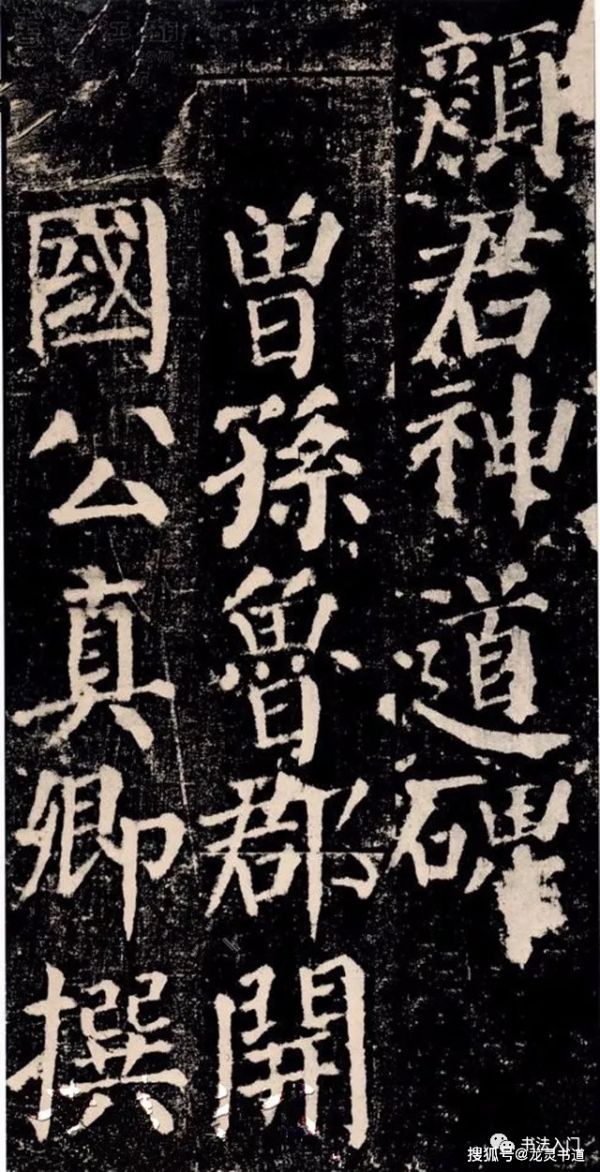 顏君神道碑
曾孫魯郡開
國公真卿撰
书法入门
搜狐号@龙灵书道